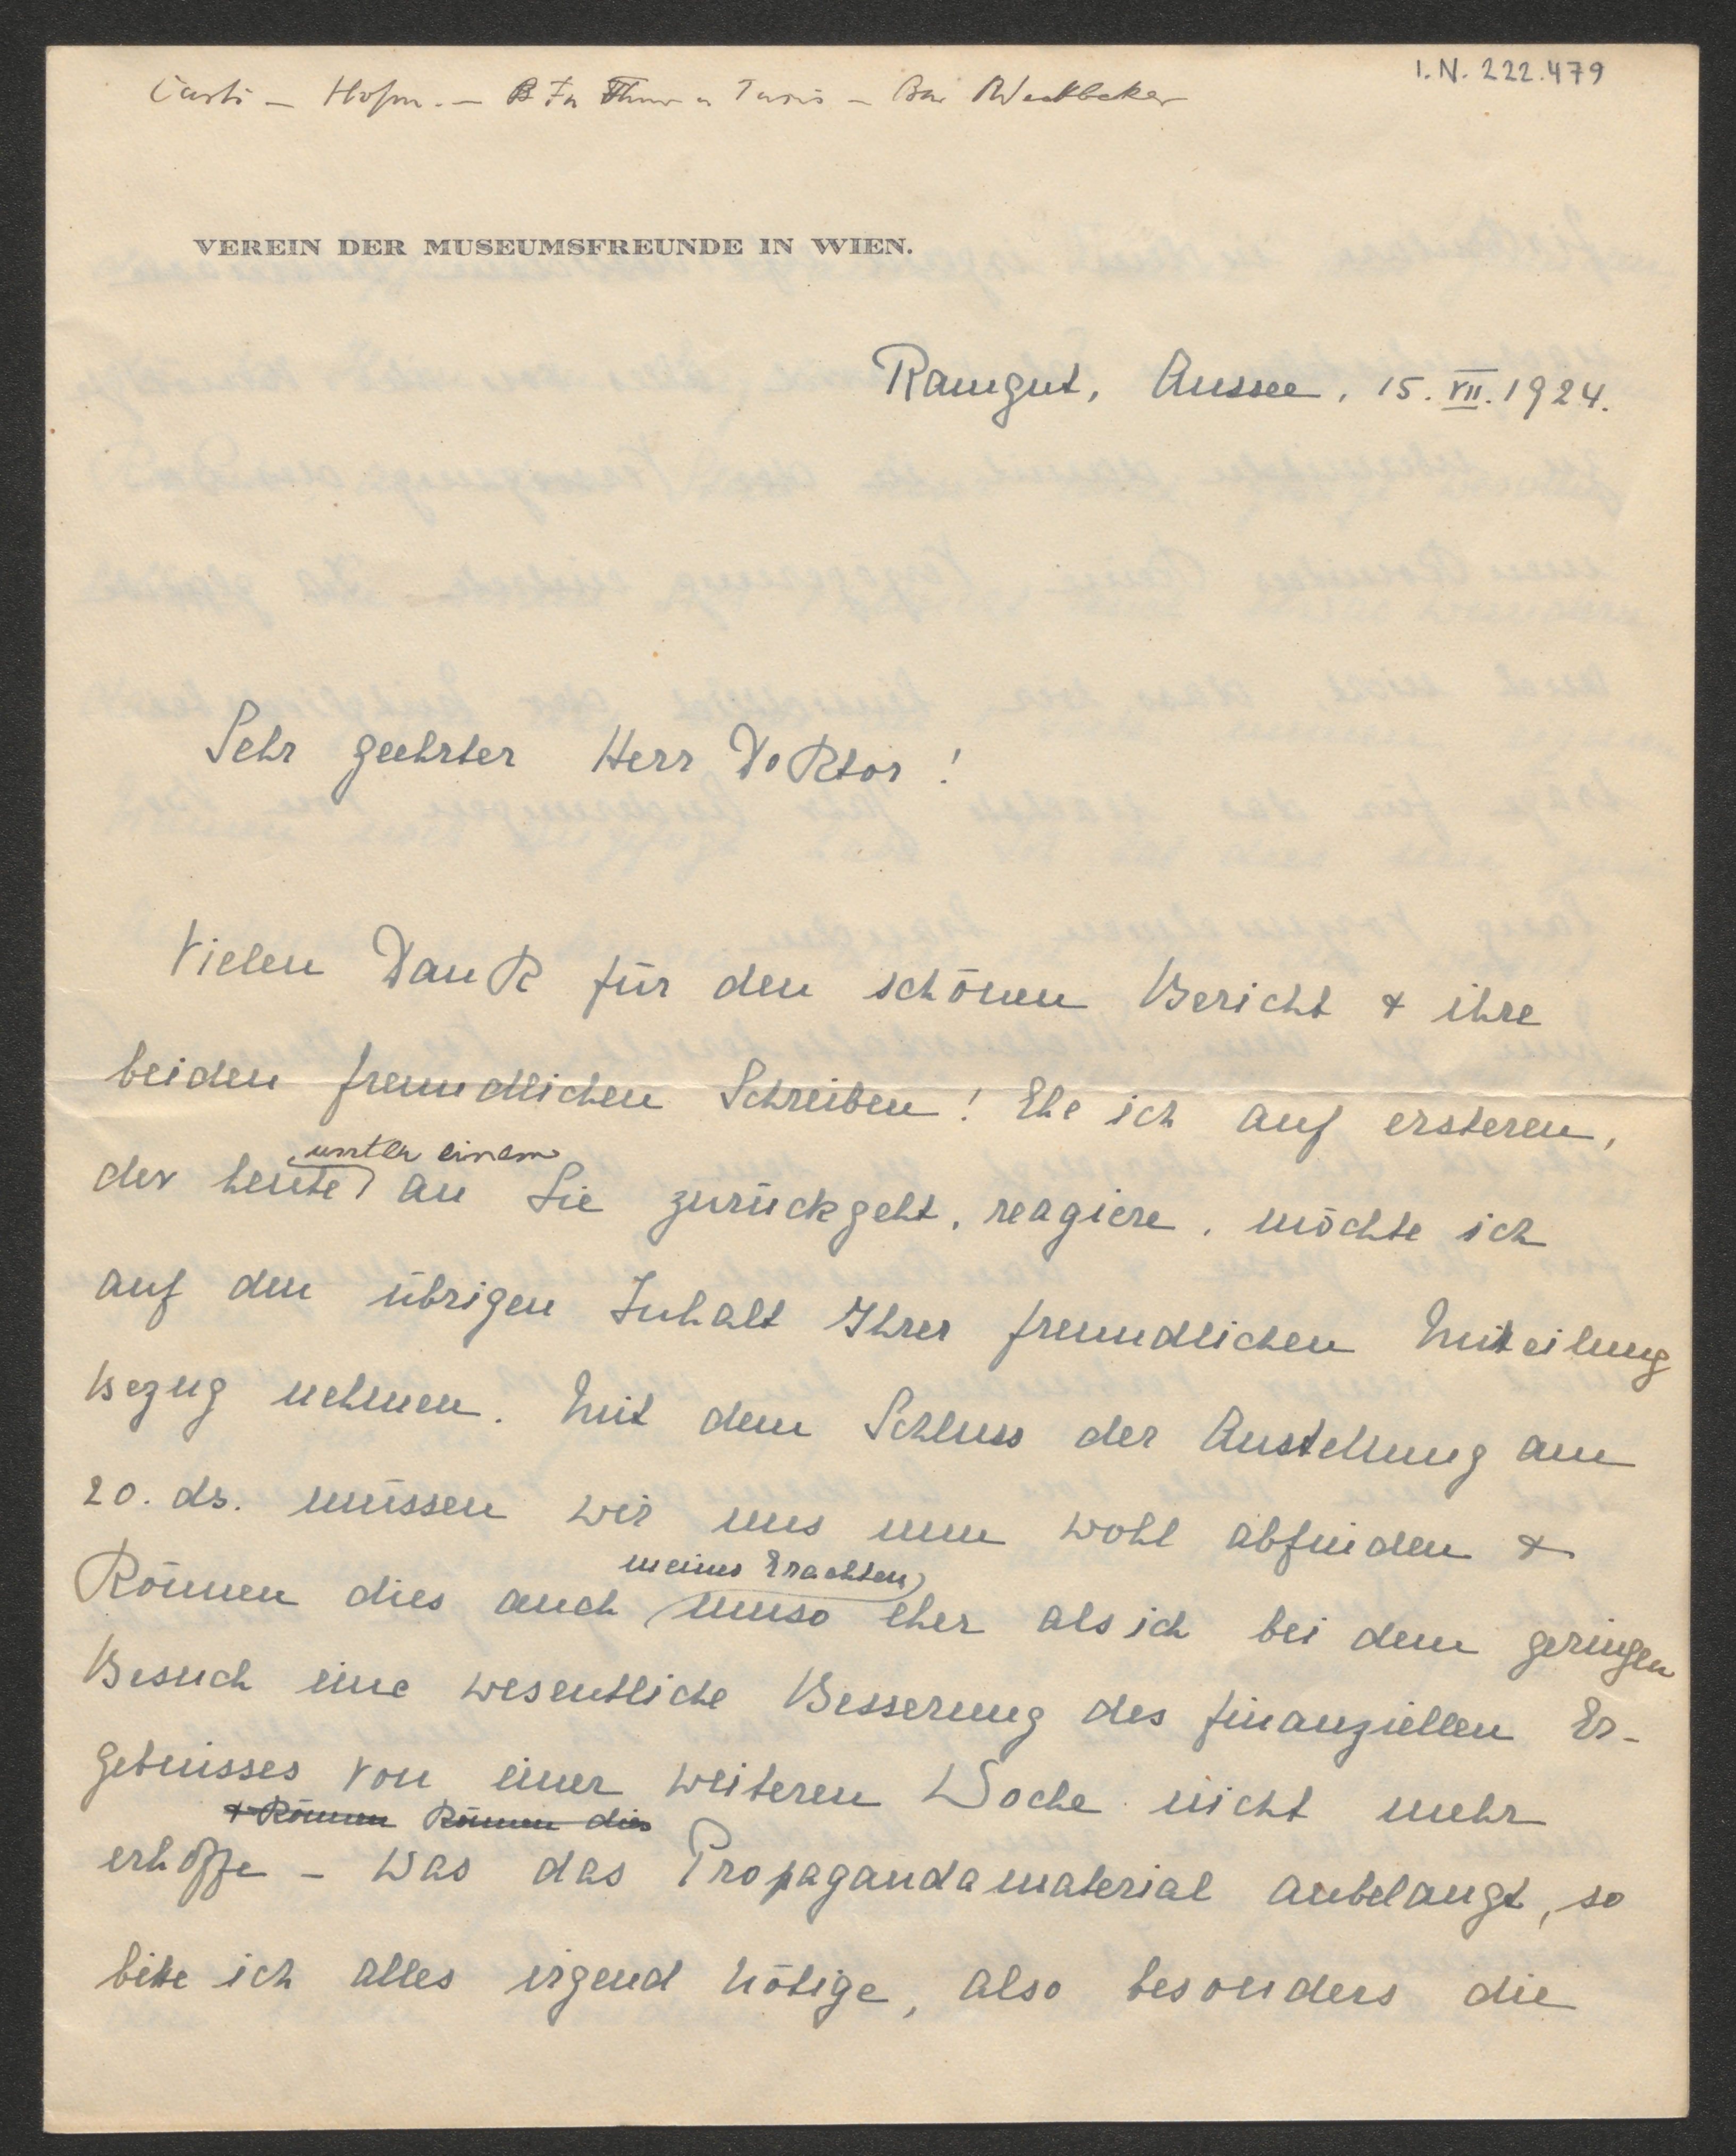 I.N. 222.479
Hofm. – Thurn u Taxis – Bar Weckbeker
VEREIN DER MUSEUMSFREUNDE IN WIEN.
Ramgut, Aussee, 15. VII. 1924.
Sehr geehrter Herr Doktor!
Vielen Dank für den schönen Bericht & ihre
beiden freundlichen Schreiben! Ehe ich auf ersteren,
unter einem
der heute an Sie zurückgeht, reagiere, möchte ich
auf den übrigen Inhalt Ihrer freundlichen Mitteilung
Bezug nehmen. Mit dem Schluss der Austellung am
20. ds. müssen wir uns nun wohl abfinden &
meines Erachtens
können dies auch umso eher als ich bei dem geringen
Besuch eine wesentliche Besserung des finanziellen Er-
gebnisses von einer weiteren Woche nicht mehr
& können können dies
erhoffe – Was das Propagandamaterial anbelangt, so
bitte ich alles irgend nötige, also besonders die